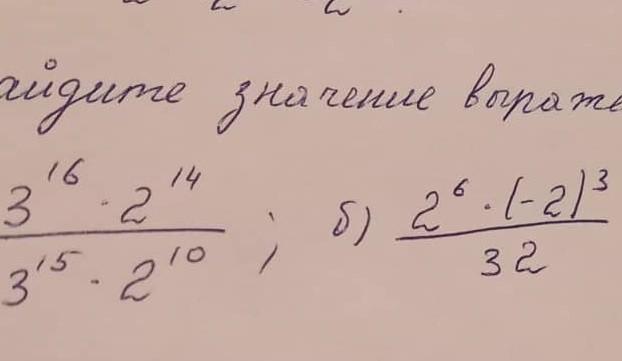 айдите значение выраже
3¹⁶ · 2¹⁴ / 3¹⁵ · 2¹⁰ ; б) 2⁶ · (-2)³ / 32